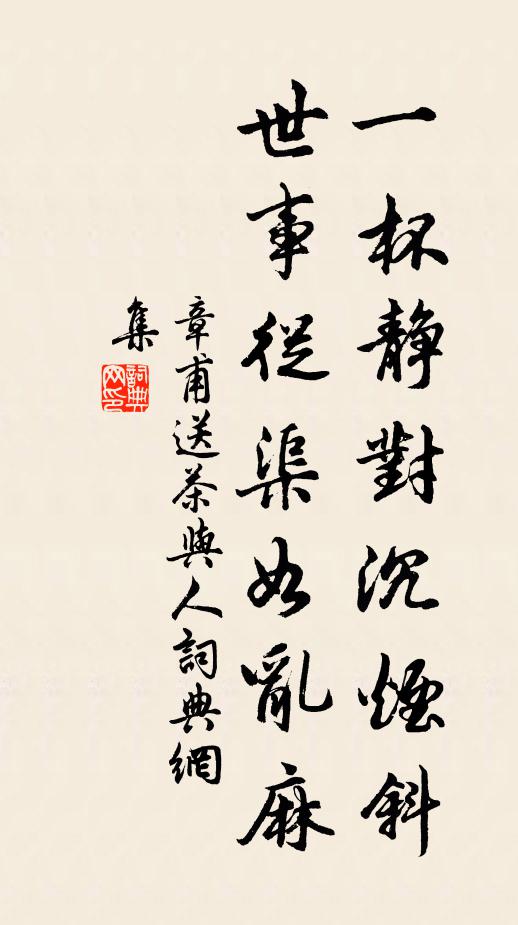 一杯静對沉煙斜
世事從渠如亂麻
章甫送茶與人詞典網
集
詞典网印